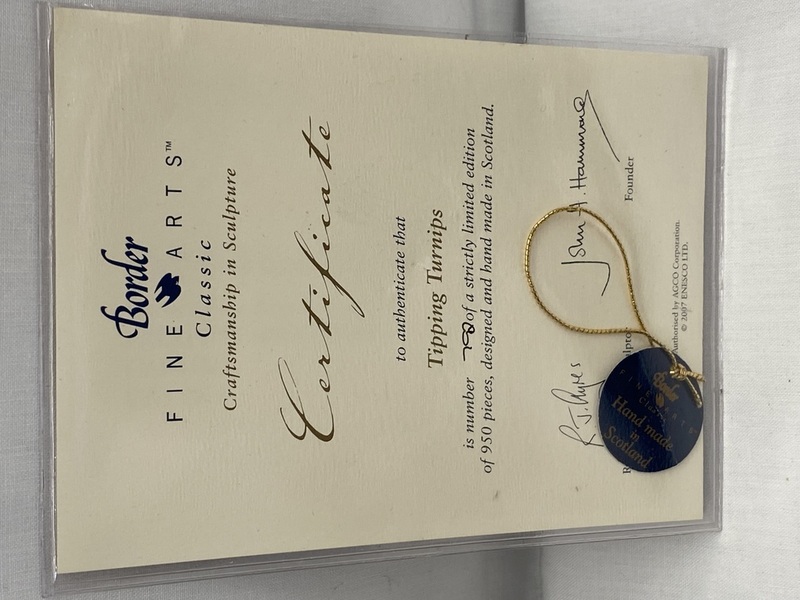 Border
FINE ARTS™
Classic
Craftsmanship in Sculpture
Certificate
to authenticate that
Tipping Turnips
is number of a strictly limited edition
of 950 pieces, designed and hand made in Scotland.
R.J. Ayres John H. Hammond
Founder
Authorised by AGCO Corporation.
© 2007 ENESCO LTD.
Border
FINE ARTS
Classic
Hand made
in
Scotland